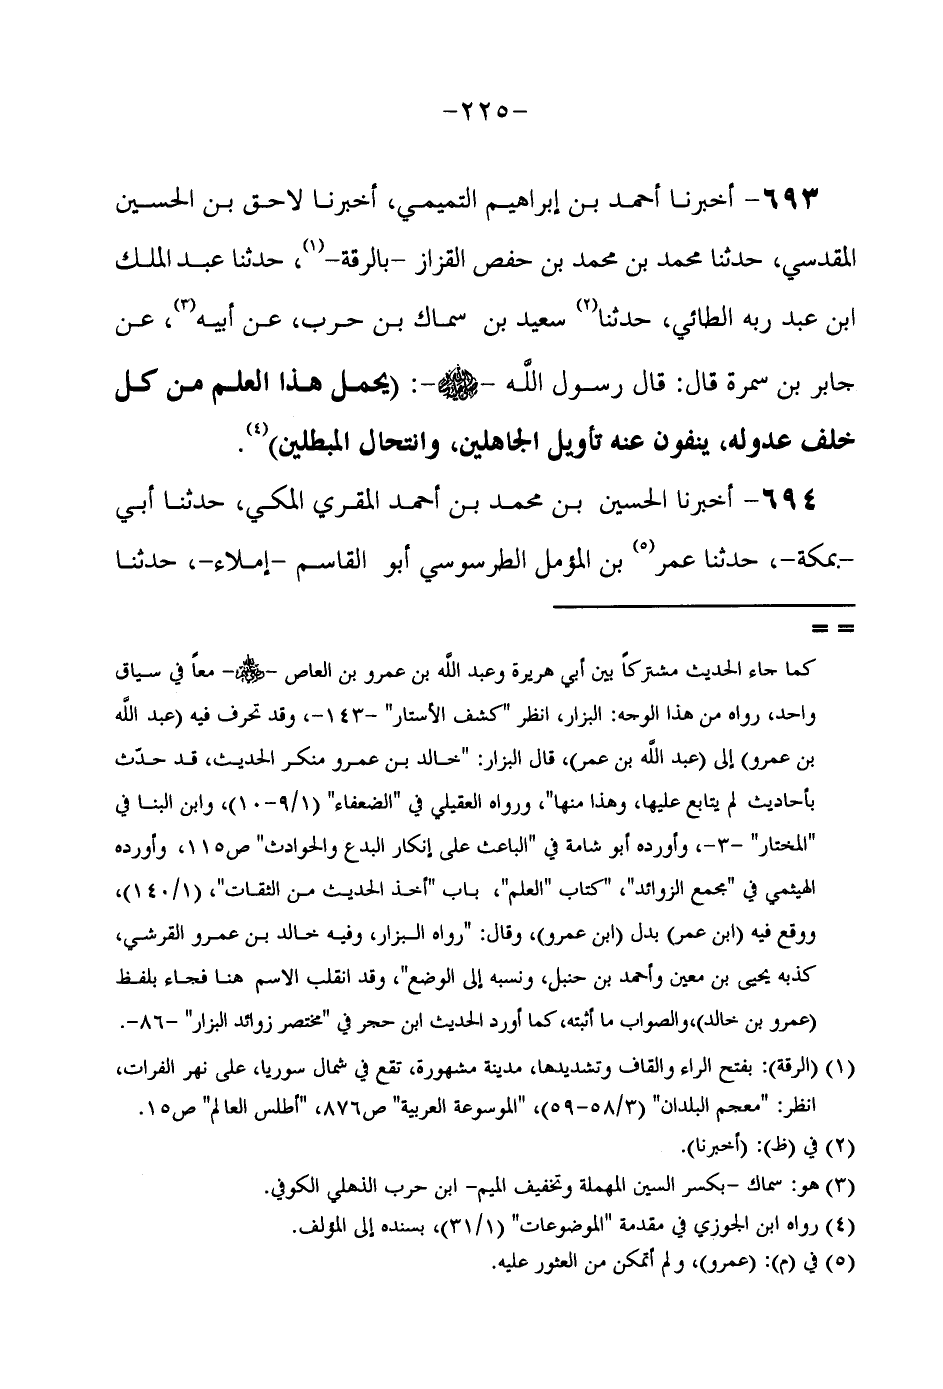 -٢٢٥-
٦٩٣- أخبرنا أحمد بن إبراهيم التميمي، أخبرنا لاحق بن الحسين
المقدسي، حدثنا محمد بن محمد بن حفص القزاز -بالرقة-(١)، حدثنا عبد الملك
ابن عبد ربه الطائي، حدثنا(٢) سعيد بن سماك بن حرب، عن أبيه(٣)، عن
جابر بن سمرة قال: قال رسول اللَّه -ﷺ-: (يحمل هذا العلم من كل
خلف عدوله، ينفون عنه تأويل الجاهلين، وانتحال المبطلين)(٤).
٦٩٤- أخبرنا الحسين بن محمد بن أحمد المقري المكي، حدثنا أبي
-بمكة-، حدثنا عمر(٥) بن المؤمل الطرسوسي أبو القاسم -إملاء-، حدثنا
= =
كما جاء الحديث مشتركاً بين أبي هريرة وعبد اللَّه بن عمرو بن العاص -ﷺ- معاً في سياق
واحد، رواه من هذا الوجه: البزار، انظر "كشف الأستار" -١٤٣-، وقد تحرف فيه (عبد اللَّه
بن عمرو) إلى (عبد اللَّه بن عمر)، قال البزار: "خالد بن عمرو منكر الحديث، قد حدّث
بأحاديث لم يتابع عليها، وهذا منها"، ورواه العقيلي في "الضعفاء" (٩/١-١٠)، وابن البنا في
"المختار" -٣-، وأورده أبو شامة في "الباعث على إنكار البدع والحوادث" ص١١٥، وأورده
الهيثمي في "مجمع الزوائد"، "كتاب "العلم"، باب "أخذ الحديث من الثقات"، (١٤٠/١)،
ووقع فيه (ابن عمر) بدل (ابن عمرو)، وقال: "رواه البزار، وفيه خالد بن عمرو القرشي،
كذبه يحيى بن معين وأحمد بن حنبل، ونسبه إلى الوضع"، وقد انقلب الاسم هنا فجاء بلفظ
(عمرو بن خالد)،والصواب ما أثبته، كما أورد الحديث ابن حجر في "مختصر زوائد البزار" -٨٦-.
(١) (الرقة): بفتح الراء والقاف وتشديدها، مدينة مشهورة، تقع في شمال سوريا، على نهر الفرات،
انظر: "معجم البلدان" (٥٨/٣-٥٩)، "الموسوعة العربية" ص٨٧٦، "أطلس العالم" ص١٥.
(٢) في (ظ): (أخبرنا).
(٣) هو: سماك -بكسر السين المهملة وتخفيف الميم- ابن حرب الذهلي الكوفي.
(٤) رواه ابن الجوزي في مقدمة "الموضوعات" (٣١/١)، بسنده إلى المؤلف.
(٥) في (م): (عمرو)، ولم أتمكن من العثور عليه.